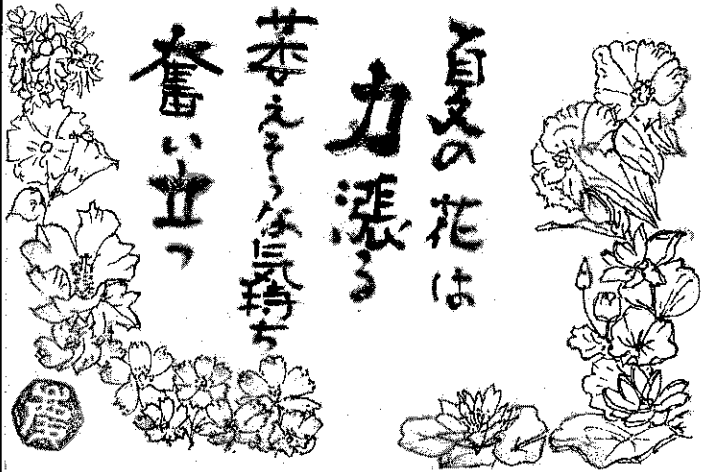 夏の花は
力漲る
萎えそうな気持ち
奮い立つ